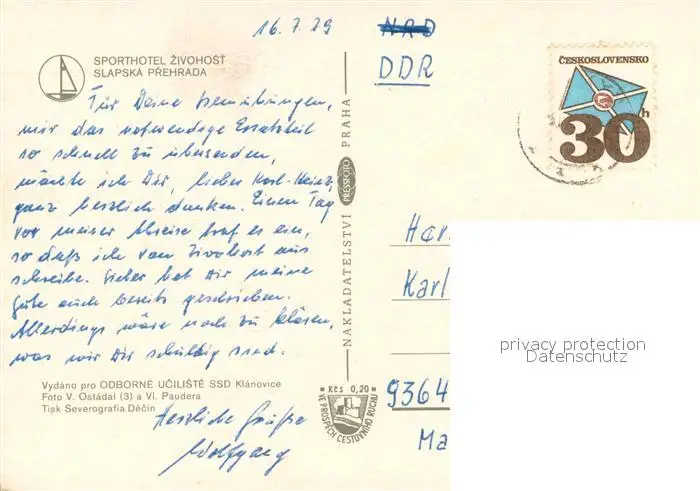 16.7.79
NRD
DDR
ČESKOSLOVENSKO
30 h
SPORTHOTEL ŽIVOHOŠŤ
SLAPSKÁ PŘEHRADA
Für Deine Bemühungen,
mir das notwendige Ersatzteil
so schnell zu übersenden,
möchte ich Dir, lieber Karl-Heinz,
ganz herzlich danken. Einen Tag
vor meiner Abreise traf es ein,
so daß ich von Živohost aus
schreibe. Sicher hat Dir meine
Gute auch bereits geschrieben.
Allerdings wäre noch zu klären,
was wir Dir schuldig sind.
Herzliche Grüße
Wolfgang
Vydáno pro ODBORNÉ UČILIŠTĚ SSD Klánovice
Foto V. Ostádal (3) a Vl. Paudera
Tisk Severografia Děčín
NAKLADATELSTVÍ PRESSFOTO PRAHA
Kčs 0,20
VE PROSPĚCH CESTOVNÍHO RUCHU
Her
Karl
9364
Ma
privacy protection
Datenschutz